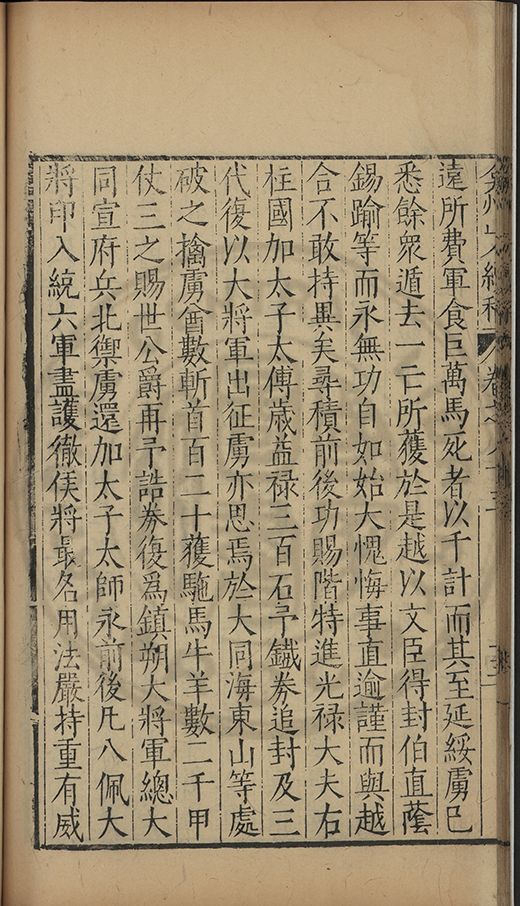 遠所費軍食巨萬馬死者以千計而其至延綏虜已
悉餘衆遁去一亡所獲於是越以文臣得封伯直蔭
錫踰等而永無功自如始大愧悔事直逾謹而與越
合不敢持異矣尋積前後功賜階特進光禄大夫右
柱國加太子太傅歲益禄三百石予鐵券追封及三
代復以大將軍出征虜亦思馬於大同海東山等處
破之擒虜酋數斬首百二十獲駞馬牛羊數二千甲
仗三之賜世公爵再予誥券復爲鎮朔大將軍總大
同宣府兵北禦虜還加太子太師永前後凡八佩大
將印入統六軍盡護徹侯將最名用法嚴持重有威